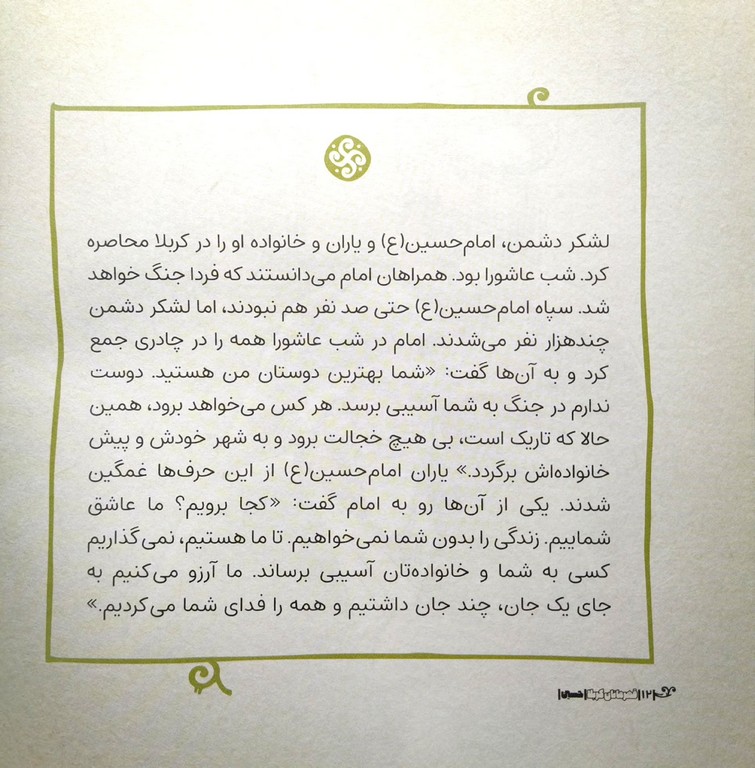 لشکر دشمن، امام‌حسین(ع) و یاران و خانواده او را در کربلا محاصره
کرد. شب عاشورا بود. همراهان امام می‌دانستند که فردا جنگ خواهد
شد. سپاه امام‌حسین(ع) حتی صد نفر هم نبودند، اما لشکر دشمن
چندهزار نفر می‌شدند. امام در شب عاشورا همه را در چادری جمع
کرد و به آن‌ها گفت: «شما بهترین دوستان من هستید. دوست
ندارم در جنگ به شما آسیبی برسد. هر کس می‌خواهد برود، همین
حالا که تاریک است، بی هیچ خجالت برود و به شهر خودش و پیش
خانواده‌اش برگردد.» یاران امام‌حسین(ع) از این حرف‌ها غمگین
شدند. یکی از آن‌ها رو به امام گفت: «کجا برویم؟ ما عاشق
شماییم. زندگی را بدون شما نمی‌خواهیم. تا ما هستیم، نمی‌گذاریم
کسی به شما و خانواده‌تان آسیبی برساند. ما آرزو می‌کنیم به
جای یک جان، چند جان داشتیم و همه را فدای شما می‌کردیم.»
|۱۲| قهرمانان کربلا | حسین |